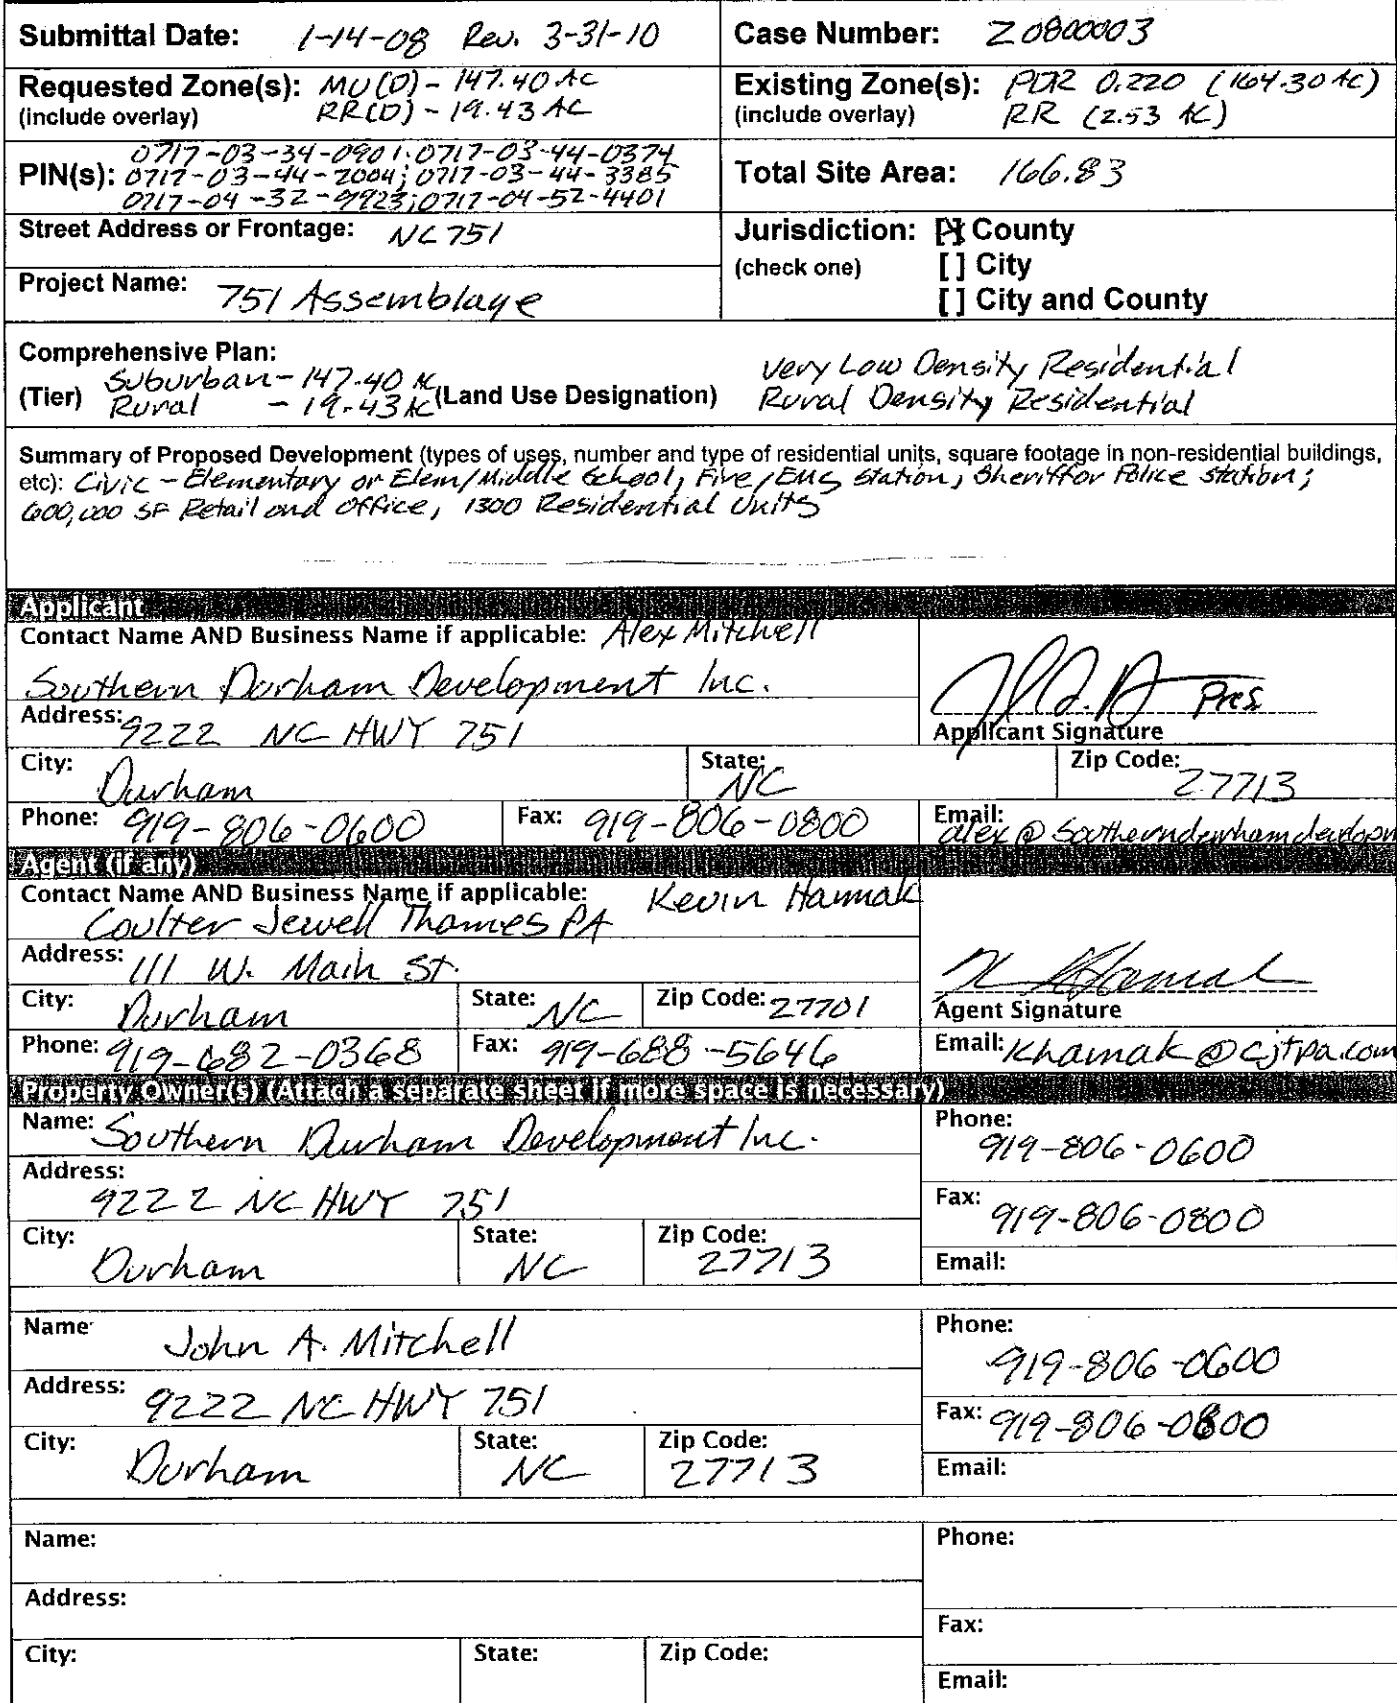 Submittal Date: 1-14-08 Rev. 3-31-10
Case Number: Z0800003
Requested Zone(s): MU(D) - 147.40 AC
(include overlay) RR(D) - 19.43 AC
Existing Zone(s): PDR 0.220 (164.30 AC)
(include overlay) RR (2.53 AC)
0717-03-34-0901; 0717-03-44-0374
PIN(s): 0717-03-44-2004; 0717-03-44-3385
0717-04-32-9923; 0717-04-52-4401
Total Site Area: 166.83
Street Address or Frontage: NC 751
Project Name: 751 Assemblage
Jurisdiction: [X] County
(check one) [ ] City
[ ] City and County
Comprehensive Plan:
(Tier) Suburban - 147.40 AC
Rural - 19.43 AC
(Land Use Designation) Very Low Density Residential
Rural Density Residential
Summary of Proposed Development (types of uses, number and type of residential units, square footage in non-residential buildings,
etc): Civic - Elementary or Elem/Middle School, Fire/EMS Station, Sheriff or Police Station;
600,000 SF Retail and Office, 1300 Residential Units
Applicant
Contact Name AND Business Name if applicable: Alex Mitchell
Southern Durham Development Inc.
Pres.
Applicant Signature
Address: 9222 NC HWY 751
City: Durham
State: NC
Zip Code: 27713
Phone: 919-806-0600
Fax: 919-806-0800
Email: alex@southerndurhamdevelopm
Agent (if any)
Contact Name AND Business Name if applicable: Kevin Hamak
Coulter Jewell Thames PA
Address: 111 W. Main St.
Agent Signature
City: Durham
State: NC
Zip Code: 27701
Phone: 919-682-0368
Fax: 919-688-5646
Email: Khamak@cjtpa.com
Property Owner(s) (Attach a separate sheet if more space is necessary)
Name: Southern Durham Development Inc.
Phone: 919-806-0600
Address: 9222 NC HWY 751
Fax: 919-806-0800
City: Durham
State: NC
Zip Code: 27713
Email:
Name: John A. Mitchell
Phone: 919-806-0600
Address: 9222 NC HWY 751
Fax: 919-806-0800
City: Durham
State: NC
Zip Code: 27713
Email:
Name:
Phone:
Address:
Fax:
City:
State:
Zip Code:
Email: